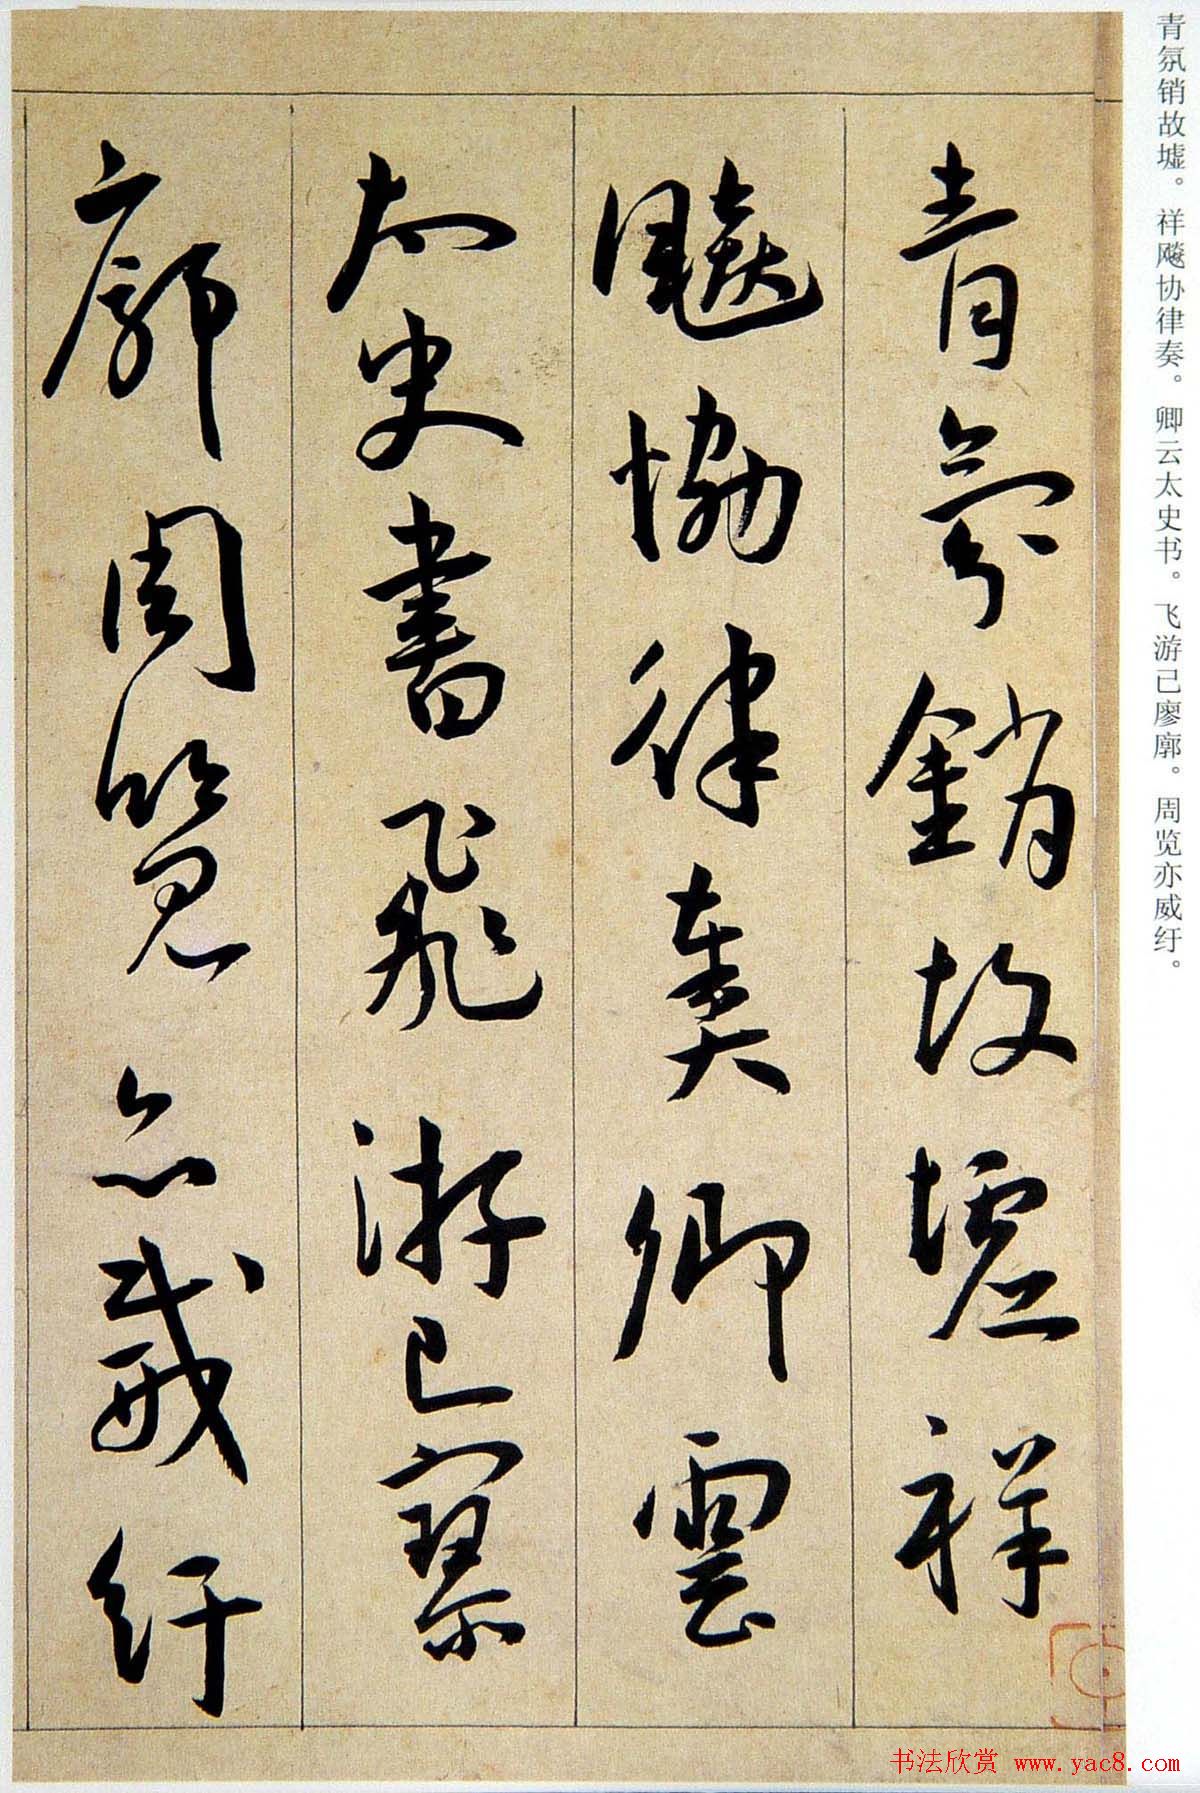 青氛销故墟。祥飚协律奏。卿云太史书。飞游已廖廓。周览亦威纡。
青氛銷故墟祥
飈恊律奏卿雲
太史書飛游已寥
廓周覽亦威紆
书法欣赏 www.yac8.com